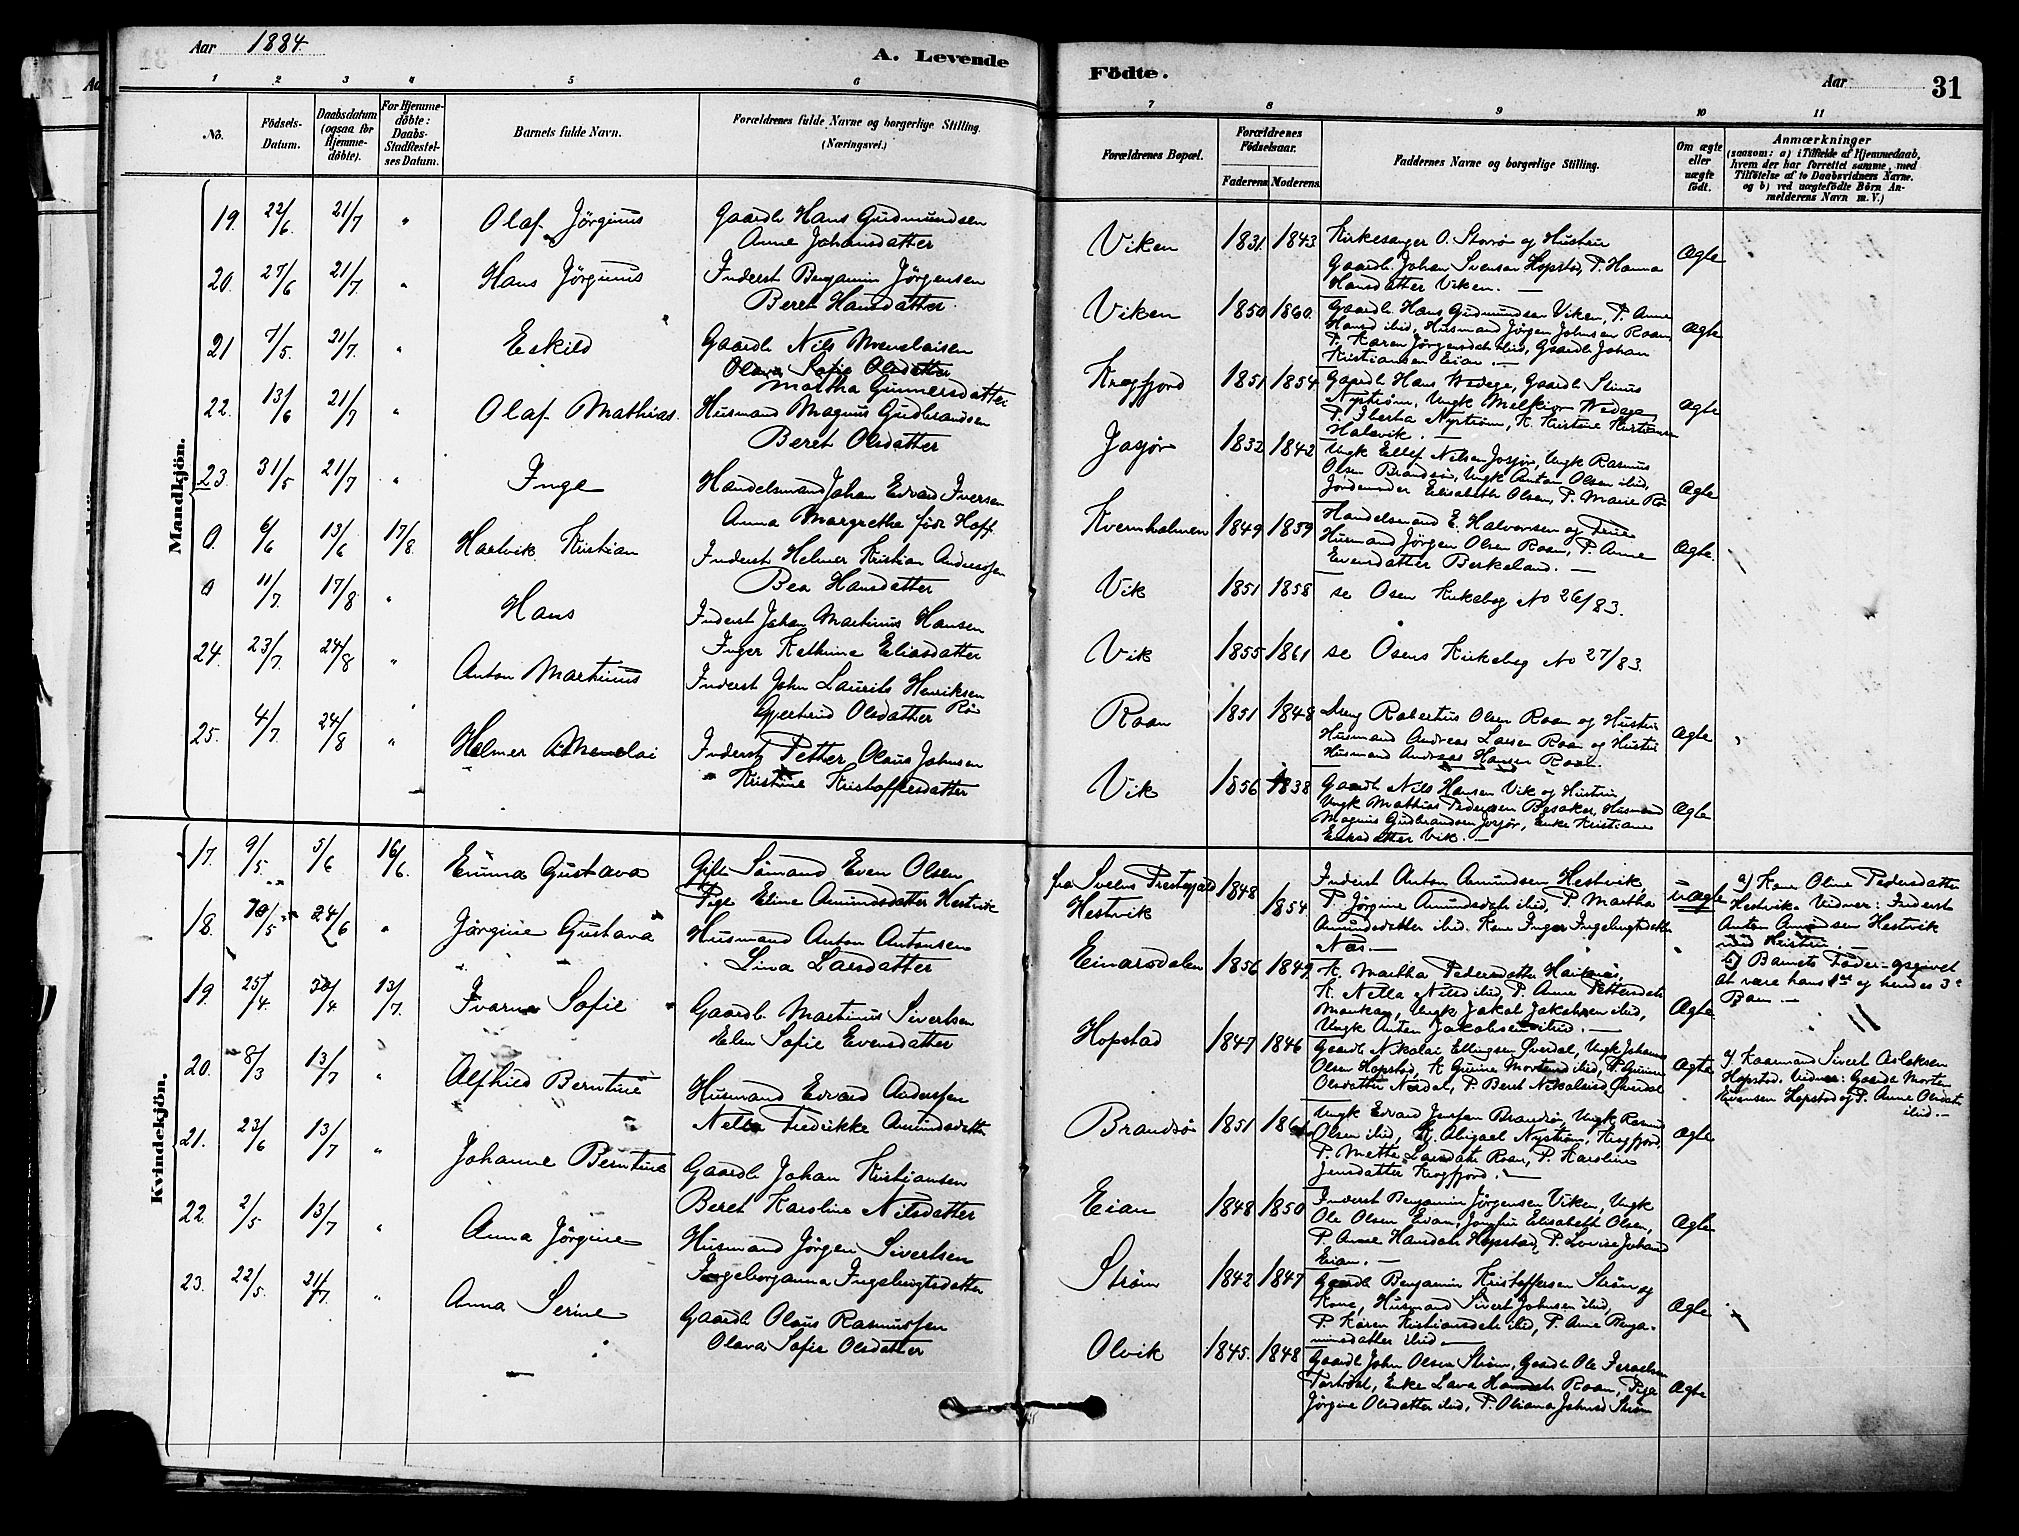 Aar 1884.
A. Levende
Födte.
Aar
31
1 2 3 4 5 6 7 8 9 10 11
No.
Födsels-Datum.
Daabsdatum (ogsaa for Hjemme-döbte).
For Hjemme-döbte: Daabs-Stadfæstel-ses Datum.
Barnets fulde Navn.
Forældrenes fulde Navne og borgerlige Stilling. (Næringsvei.)
Forældrenes Bopæl.
Forældrenes Födselsaar.
Faderens. Moderens.
Faddernes Navne og borgerlige Stilling.
Om ægte eller uægte födt.
Anmærkninger
(saasom: a) i Tilfælde af Hjemmedaab, hvem der har forrettet samme, med Tilföielse af to Daabsvidners Navne, og b) ved uægtefödte Börn An-melderens Navn m. V.)
Mandkjön.
19. 22/6 21/7 " Olaf Jörginus Gaardb Hans Gudmundsen
Anne Johansdatter
Viken 1831 1843 Kirkesanger O. Storrø og Hustru
Gaardb. Johan Svensen Hopstad, P. Hanna
Hansdatter Viken. Ægte
20. 27/6 21/7 " Hans Jörginus Inderst Benjamin Jörgensen
Beret Hansdatter
Viken 1850 1860. Gaardb Hans Gudmundsen Viken, P. Anne
Hansd ibid, Husmand Jørgen Johnsen Roan,
P. Karen Jørgensdatr ibid, Gaardb Johan
Kristiansen Eian. Ægte
21 7/5 21/7 " Eskild Gaardb Nils Menelaisen
Olava Sofie Olsdatter
Martha Gunnersdatter
Kregfjord 1851 1854 Gaardb Hans Wedege, Gaardb Stinus
Nystrøm, Ungk Melkior Wedege,
P. Iberha Nystrøm, K. Kristine Kristianse
Halsvik. Ægte
22. 13/6 21/7 " Olaf Mathias. Husmand Magnus Gudbrandsen
Beret Olsdatter
Josjør 1832 1842 Ungk Ellef Nilsen Josjør, Ungk Rasmus
Olsen Brandsøn, Ungk Anton Olsen ibid,
Jordemoder Elisabeth Olsen, P. Marie Rø Ægte
23. 31/5 21/7 " Inge Handelsmand Johan Edvard Iversen
Anna Margrethe føde Hoff
Kvernholmen 1849 1859 Handelsmand E. Halvorsen og Frue
Husmand Jørgen Olsen Roan, P. Anne
Evensdatter Berkeland. Ægte
0. 6/6 13/6 17/8 Hartvik Kristian Inderst Helmer Kristian Andreassen
Bea Hansdatter
Vik 1851 1858 se Osen Kirkebog No 26/83.
0 11/7 17/8 " Hans Inderst Johan Martinus Hansen
Inger Kathrine Eliasdatter
Vik 1855 1861 se Osens Kirkebog No 27/83.
24. 23/7 24/8 " Anton Martinus Inderst John Laurits Henriksen
Gjertrud Olsdatter Rø
Roan 1851 1848 Dreng Robertus Olsen Roan og Hustru
Husmand Andreas Larsen Roan og Hustru
Husmand Andreas Hansen Roan. Ægte
25. 4/7 24/8 " Helmer Menelai Inderst Petter Olaus Johnsen
Kristine Kristoffersdatter
Vik 1856 1838 Gaardb Nils Hansen Vik og Hustru,
Ungk Mathias Pedersen Besaker, Husmand
Magnus Gudbrandsen Josjør, Enke Kristiane
Eriksdatter Vik. Ægte
Kvindekjön.
17. 9/5 5/6 16/6 Emma Gustava Gift Sømand Even Olsen
Pige Eline Amundsdatter Hestvik
fra Svelvs Prestegjeld
Hestvik 1848 1854 Inderst Anton Amundsen Hestvik,
P. Jørgine Amundsdatr ibid, P. Martha
Amundsdatter ibid. Kone Inger Ingebrigtsdatter
Næs. uægte a) Kone Oline Pedersdatter
Hestvik. Vidner: Inderst
Anton Amundsen Hestvik
med Hustru.
b) Barnets Fader opgivet
at være hans 1ste og hendes 3e
Barn
18. 10/5 24/6 " Jörgine Gustava Husmand Anton Antonsen
Lina Larsdatter
Einarsdalen 1856 1849 K. Martha Pedersdatter Harbak,
K. Nella Nilsd ibid, P. Anne Pettersdatr
Monkan, Ungk Jakob Jakobsen ibid,
Ungk Anton Jakobsen ibid. Ægte
19. 25/4 30/4 13/7 Ivarna Sofie Gaardb. Martinus Sivertsen
Elen Sofie Evensdatter
Hopstad 1847 1846 Gaardb Nikolai Ellingsen Sverdal, Ungk Johannes
Olsen Hopstad, K Gurine Mortensd ibid, P Gurine
Olsdatter Nerdal, P. Beret Nikolaisd Sverdal Ægte a) Kaarmand Sivert Aslaksen
Hopstad. Vidner: Gaardb Morten
Svensen Hopstad og P. Anne Olsdatr
ibid.
20. 8/3 13/7 " Alfhild Berntine Husmand Edvard Anderssen
Nella Fredrikke Amundsdatter
Brandsø 1851 1861 Ungk Edvard Jenssen Brandsø, Ungk Rasmus
Olsen ibid, K. Abigael Nystrøm, Kregfjord,
P. Mette Larsdatr Roan, P. Karoline
Jensdatter Kregfjord. Ægte
21. 23/6 13/7 " Johanne Berntine Gaardb Johan Kristiansen
Beret Karoline Nilsdatter
Eian 1848 1850 Inderst Benjamin Jørgensen Viken, Ungk
Ole Olsen Evan, Jomfru Elisabeth Olsen,
P. Anne Hansdatr Hopstad, P. Lovise Johansd
Eian. Ægte
22. 2/5 13/7 " Anna Jörgine Husmand Jørgen Sivertsen
Ingeborganna Ingebrigtsdatter
Strøm 1842 1847 Gaardb Benjamin Kristoffersen Strøm og
Kone, Husmand Sivert Johnsen ibid,
P. Karen Kristiansdatr ibid, P. Anne Benja-
minsdatter ibid Ægte
23. 22/5 21/7 " Anna Serine Gaardb Olaus Rasmussen
Olava Sofie Olsdatter
Olvik 1845. 1848 Gaardb John Olsen Strøm, Gaardb Ole Israelsen
Tostdal, Enke Lava Hansdatr Roan, Pige
Jørgine Olsdatter ibid, P. Oliana Johnsd Strøm Ægte